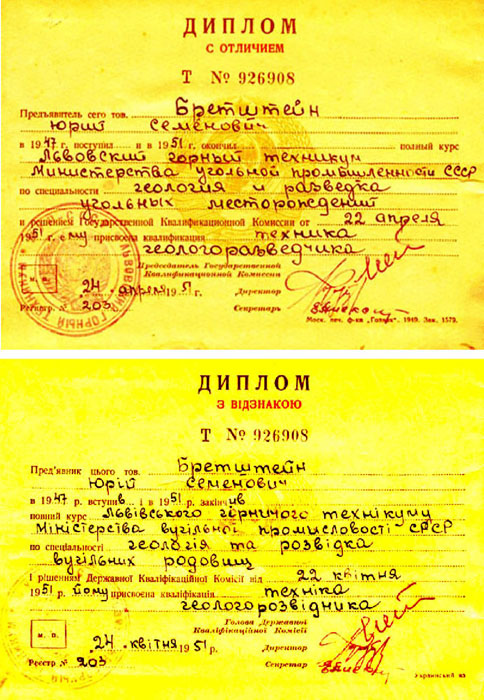 ДИПЛОМ
С ОТЛИЧИЕМ
Т № 926908
Предъявитель сего тов. Бретштейн
Юрий Семенович
в 1947 г. поступил и в 1951 г. окончил полный курс
Львовский горный техникум
Министерства угольной промышленности СССР
по специальности геология и разведка
угольных месторождений
и решением Государственной Квалификационной Комиссии от 22 апреля
1951 г. ему присвоена квалификация техника
геологоразведчика
Председатель Государственной
Квалификационной Комиссии
24 апреля 1951 г. Директор
Регистр. № 203 Секретарь
Моск. печ. ф-ка „Гознак". 1949. Зак. 1579.
ДИПЛОМ
З ВІДЗНАКОЮ
Т № 926908
Пред'явник цього тов. Бретштейн
Юрій Семенович
в 1947 р. вступив і в 1951 р. закінчив
повний курс Львівського гірничого технікуму
Міністерства вугільної промисловості СРСР
по спеціальності геологія та розвідка
вугільних родовищ
і рішенням Державної Кваліфікаційної Комісії від 22 квітня
1951 р. йому присвоєна кваліфікація техніка
геологорозвідника
Голова Державної
Кваліфікаційної Комісії
М. П.
24 квітня 1951 р. Директор
Реєстр № 203 Секретар
Украинский яз